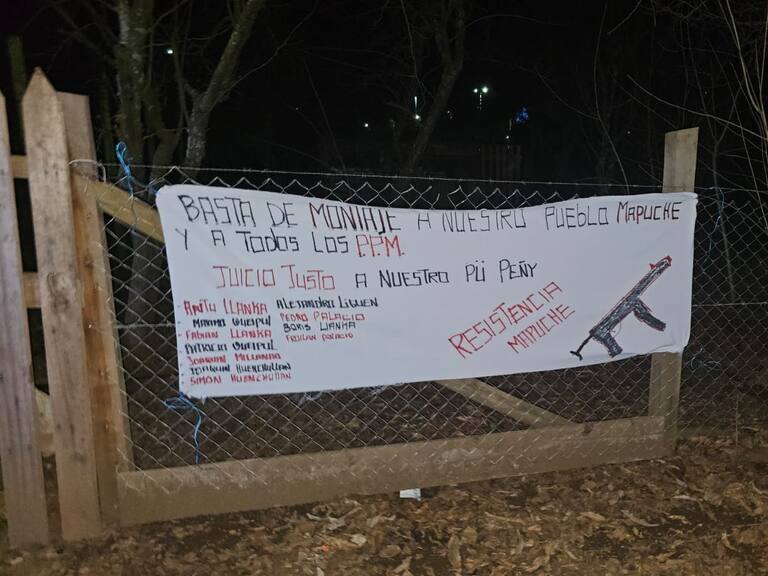 BASTA DE MONTAJE A NUESTRO PUEBLO MAPUCHE
Y A TODOS LOS P.P.M.
JUICIO JUSTO A NUESTRO PÜ PEÑY
- ANTU LLANKA ALEJANDRO LIGUEN
- QUEIPUL PEDRO PALACIO
- FABIAN LLANKA BORIS LLANKA
- PATRICIO QUEIPUL PALACIO
- JOAQUIN MILLANAO
- JOAQUIN HUENCHULLAN
- SIMÓN HUENCHULLAN
RESISTENCIA
MAPUCHE